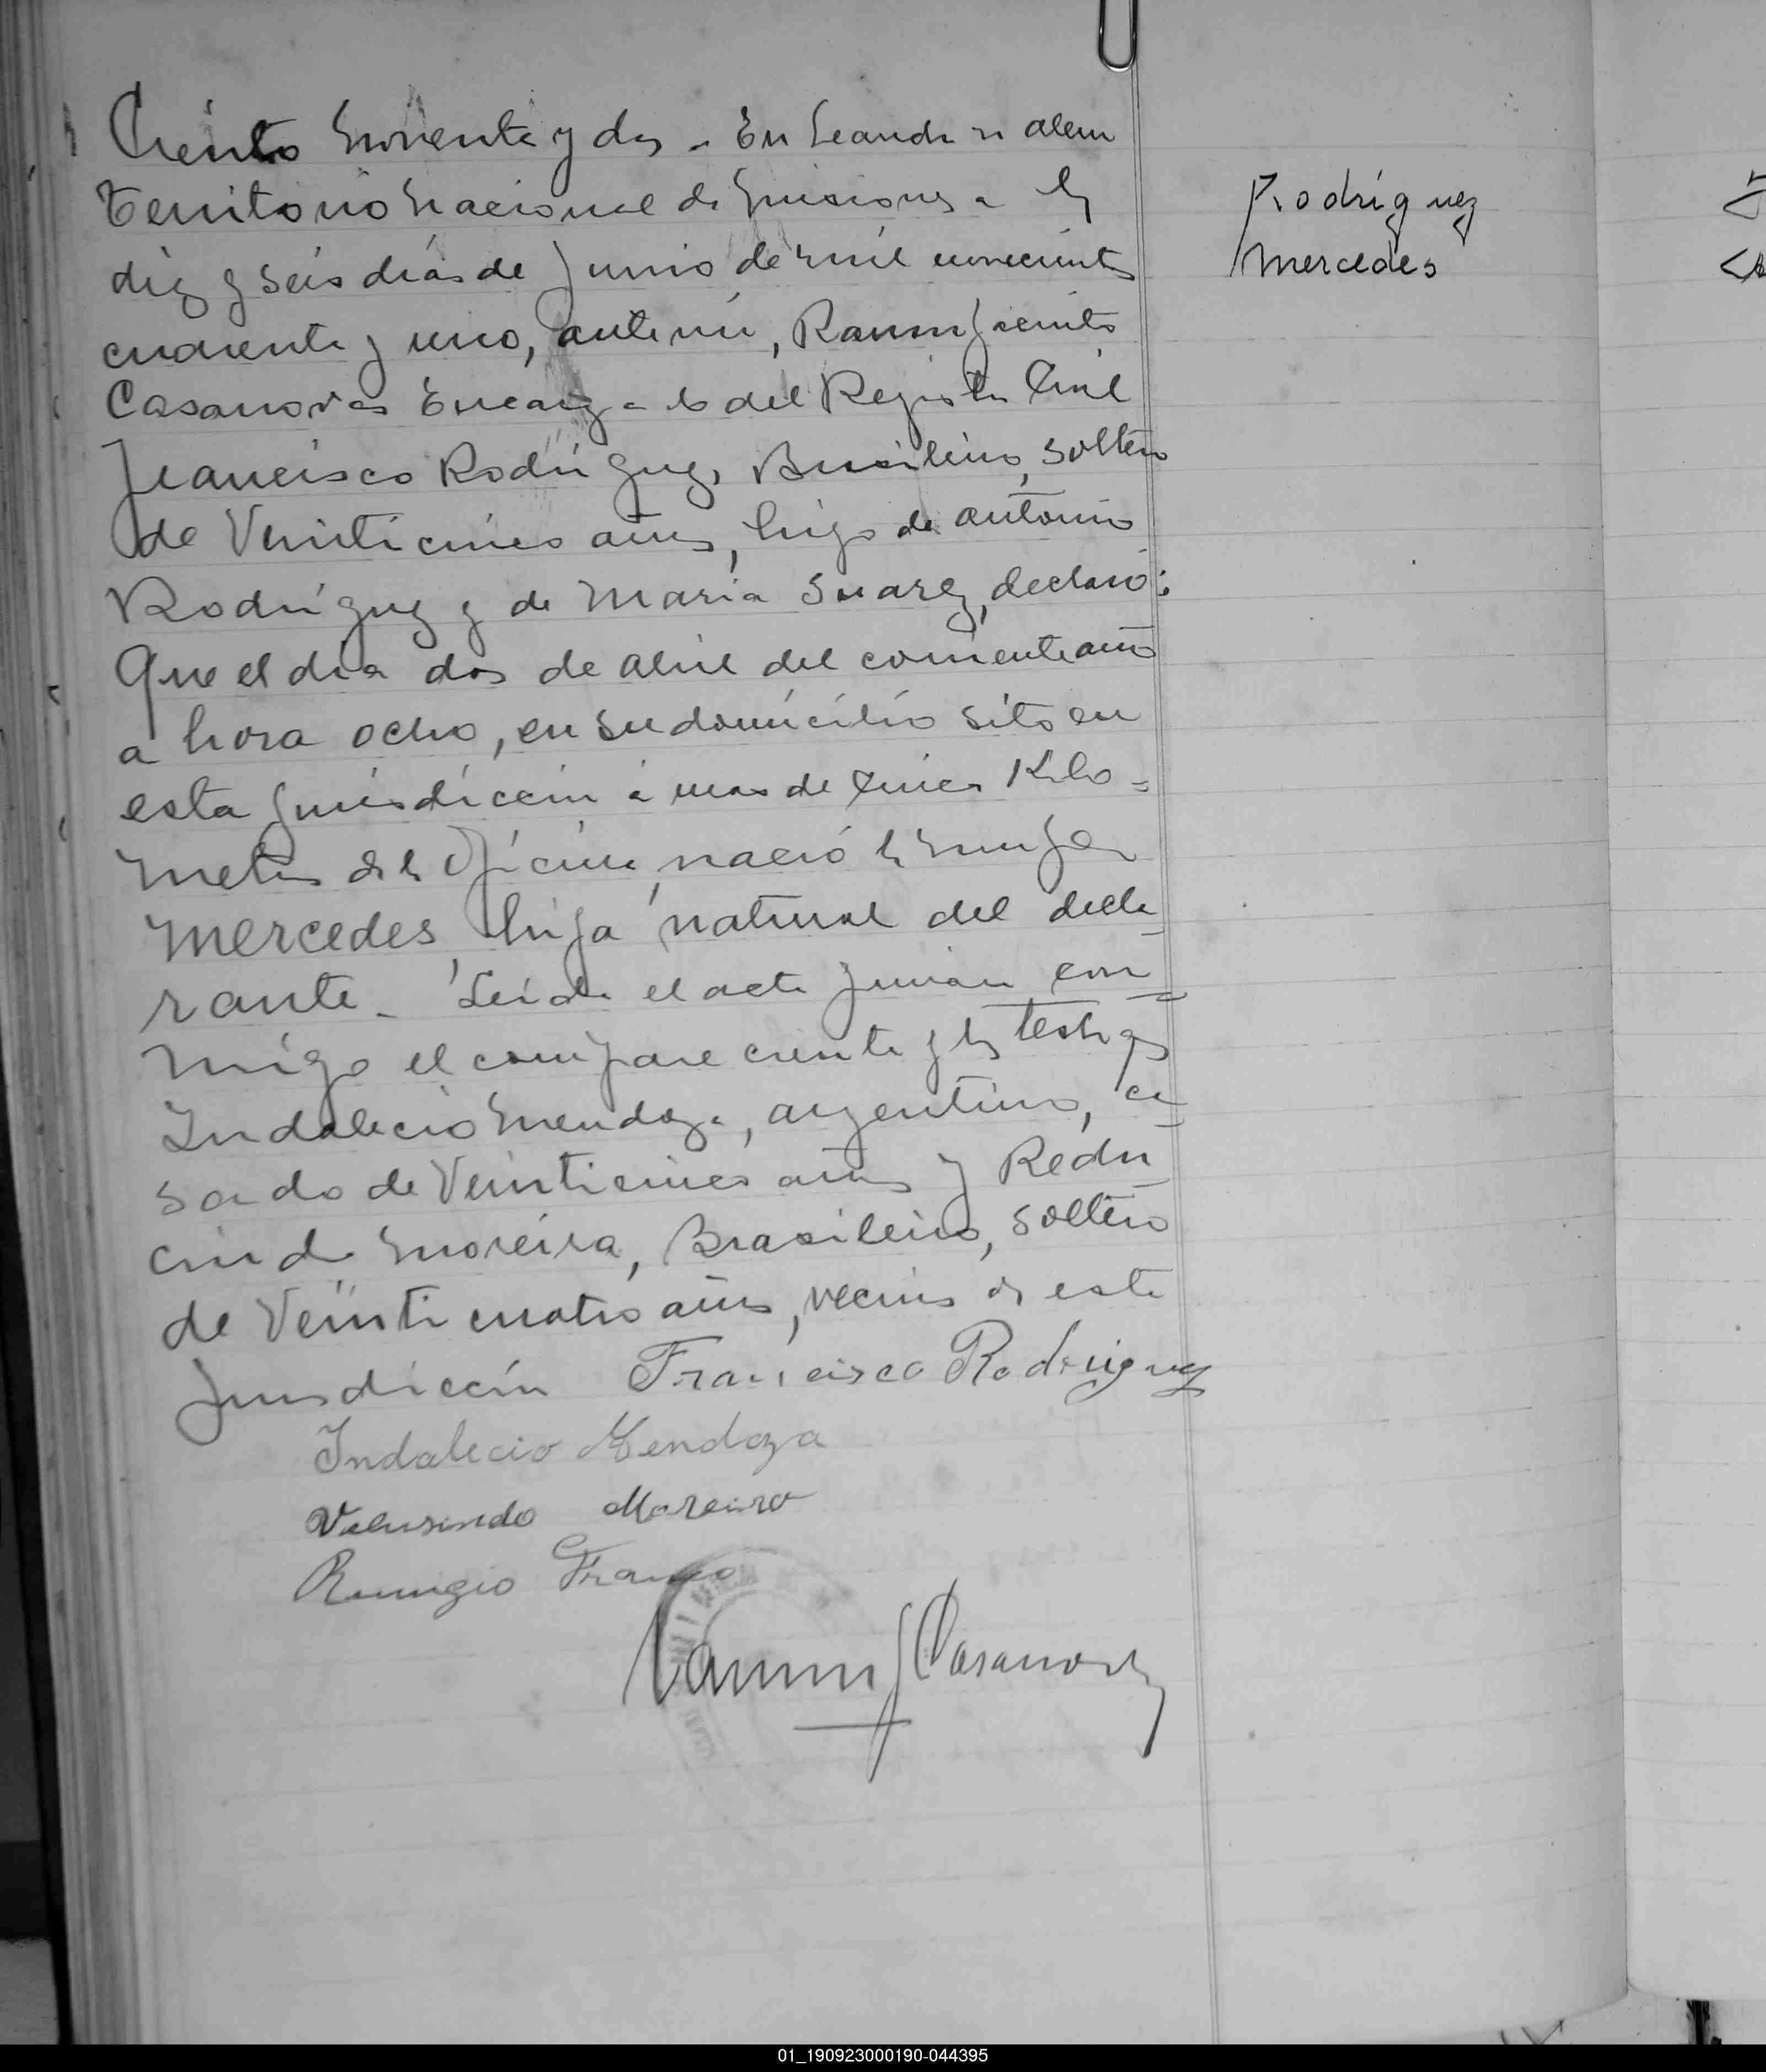 Ciento Noventa y dos - En Leandro N alem
Territorio Nacional de Misiones a los
diez y seis dias de Junio de mil novecientos
cuarenta y uno, ante mi, Ramon Jacinto
Casanovas Encargado del Registro Civil
Francisco Rodriguez, Brasilero, soltero
de Veinticinco años, hijo de antonio
Rodriguez y de Maria Suarez, declaró:
Que el dia dos de abril del corriente año
a hora ocho, en su domicilio sito en
esta jurisdiccion a mas de cinco Kilo=
metros de la Oficina, nació la mujer
Mercedes, hija natural del decla_
rante_ Leida el acta firman con_
migo el compareciente y los testigos
Indalecio Mendoza, argentino, ca_
sado de Veinticinco años y
Moreira, Brasileiro, soltero
de Veinticuatro años, vecinos de esta
jurisdiccion Francisco Rodriguez
Indalecio Mendoza
Moreira
Remigio Franco
Ramon J Casanovas
Rodríguez
Mercedes
01_190923000190-044395